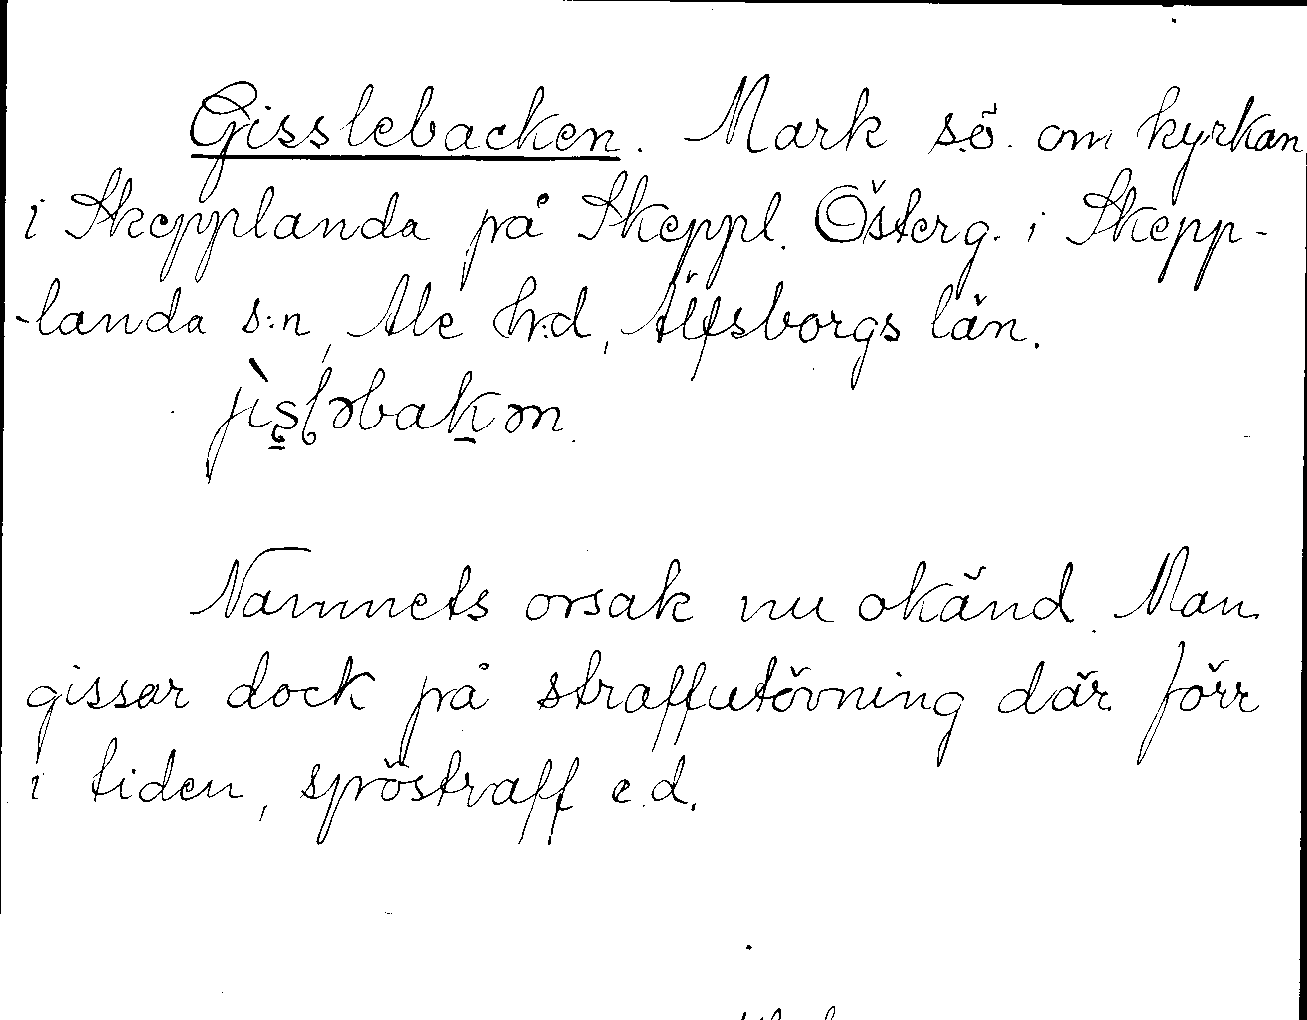 Gisslebacken. Mark s.ö. om kyrkan
i Skepplanda på Skeppl. Österg. i Skepp-
-landa s:n, Ale h:d, Älfsborgs län.
jìslǝbakǝn.
Namnets orsak nu okänd. Man
gissar dock på straffutövning där förr
i tiden, spöstraff e.d.